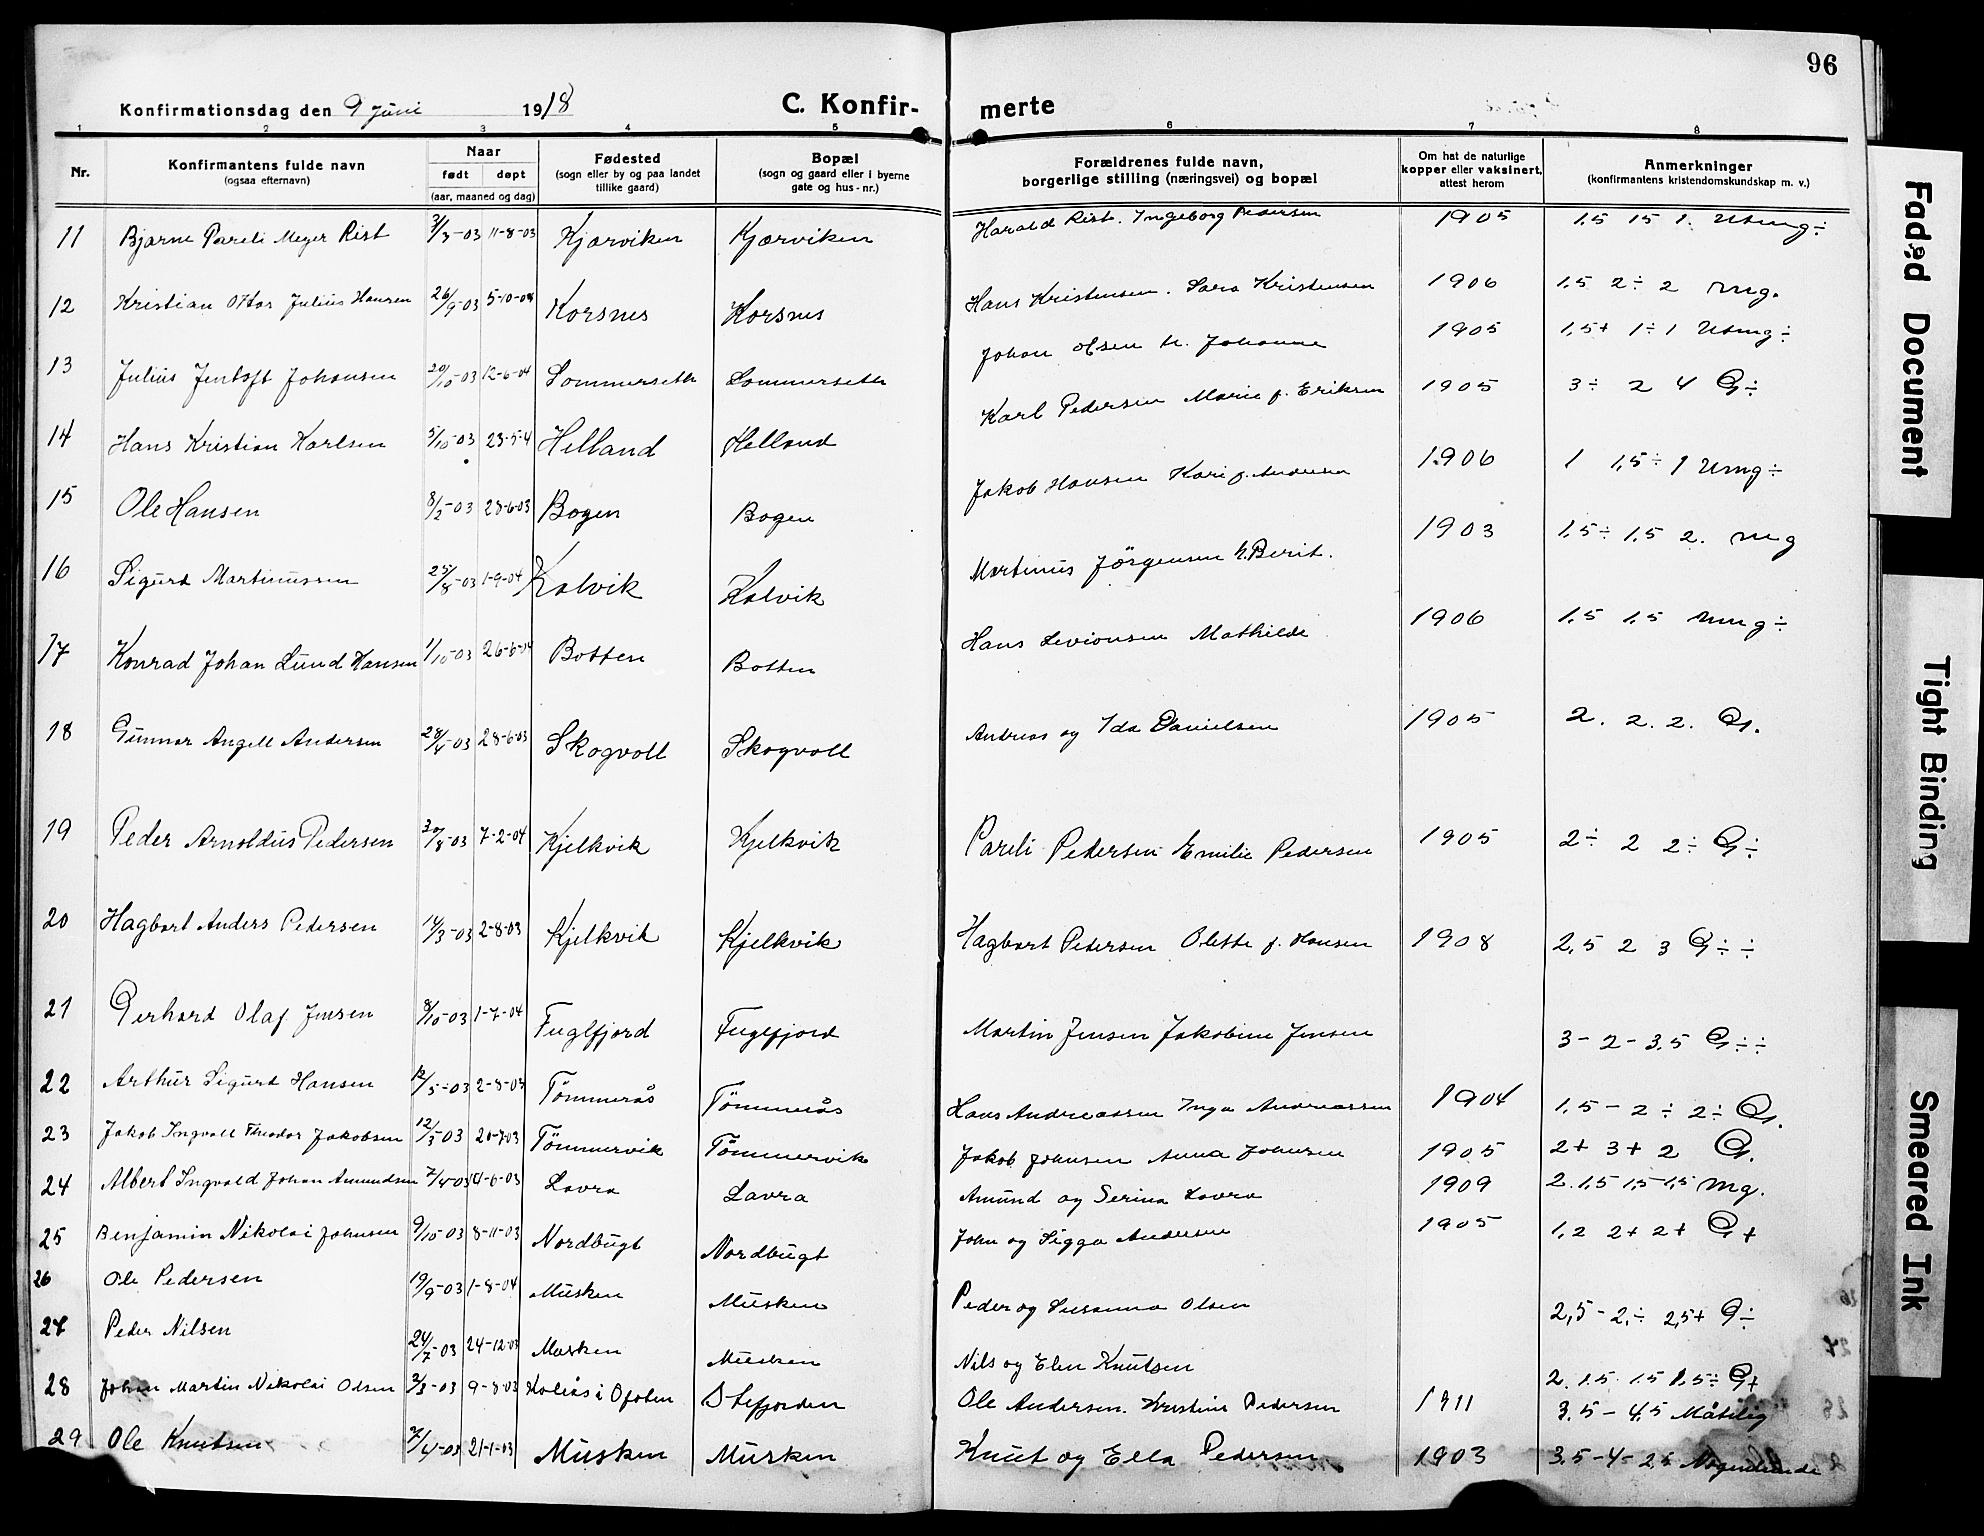 96
Konfirmationsdag den 9 Juni 1918 C. Konfir- merte
1 2 3 4 5 6 7 8
Nr. Konfirmantens fulde navn (ogsaa efternavn) Naar født døpt (aar, maaned og dag) Fødested (sogn eller by og paa landet tillike gaard) Bopæl (sogn og gaard eller i byerne gate og hus-nr.) Forældrenes fulde navn, borgerlige stilling (næringsvei) og bopæl Om hat de naturlige kopper eller vaksinert, attest herom Anmerkninger (konfirmantens kristendomskundskap m. v.)
11 Bjarne Pareli Meyer Rist 3/3-03 11-8-03 Kjærviken Kjærviken Harald Rist. Ingeborg Pedersen 1905 1,5 15 1. Utmg÷
12 Kristian Ottar Julius Hansen 26/9-03 5-10-04 Korsnes Korsnes Hans Kristensen. Sara Kristensen 1906 1,5 2÷ 2 mg.
13 Julius Jentoft Johansen 20/10-03 12-6-04 Sommerseth Sommerseth Johan Olsen h. Johanne 1905 1,5+ 1÷1 Utmg÷
14 Hans Kristian Karlsen 5/10-03 23-5-4 Helland Helland Karl Pedersen Marie f. Eriksen 1905 3÷ 2 4 G÷
15 Ole Hansen 8/2-03 28-6-03 Bogen Bogen Jakob Hansen Kari f. Andersen 1906 1 1,5÷ 1 Umg÷
16 Sigurd Martinussen 25/8-03 1-9-04 Kalvik Kalvik Martinus Jörgensen h. Berit. 1903 1,5÷ 1,5 2. mg
17 Konrad Johan Lund Hansen 1/10-03 26-6-04 Botten Botten Hans Levionsen Mathilde 1906 1,5 1,5 mg÷
18 Gunnar Angell Andersen 28/4-03 28-6-03 Skogvoll Skogvoll Andreas og Ida Danielsen 1905 2. 2. 2. G.
19 Peder Arnoldus Pedersen 30/8-03 7-2-04 Kjelkvik Kjelkvik Pareli Pedersen Emilie Pedersen 1905 2÷ 2 2÷ G÷
20 Hagbart Anders Pedersen 14/3-03 2-8-03 Kjelkvik Kjelkvik Hagbart Pedersen Olette f. Hansen 1908 2,5 2 3 G÷÷
21 Gerhard Olaf Jensen 8/10-03 1-7-04 Fuglfjord Fuglfjord Martin Jensen Jakobine Jensen 3-2-3,5 G÷÷
22 Arthur Sigurd Hansen 12/5-03 2-8-03 Tömmerås Tömmerås Hans Andreassen Inga Andreassen 1904 1,5-2÷ 2÷ G.
23 Jakob Ingvall Theodor Jakobsen 12/5 03 20-7-03 Tömmervik Tömmervik Jakob Johnsen Anna Johnsen 1905 2+ 3+ 2 G.
24 Albert Ingvald Johan Amundsen 7/4-03 14-6-03 Lavra Lavra Amund og Serina Lavra 1909 2. 1,5 1,5-1,5 mg.
25 Benjamin Nikolai Johnsen 9/10-03 8-11-03 Nordbugt Nordbugt John og Sigga Andersen 1905 1,2 2+ 2+ G+
26 Ole Pedersen 19/9-03 1-8-04 Musken Musken Peder og Susanna Olsen 2,5-2÷ 2,5+ G÷
27 Peder Nilsen 24/7-03 24-12-03 Musken Musken Nils og Elen Knutsen 2. 1.5 1.5 1,5÷ G+
28 Johan Martin Nikolai Olsen 3/3-03 9-8-03 i Ofoten Stefjorden Ole Andersen. Kristine Pedersen 1911 3,5-4,5 Måtelig
29 Ole Knutsen 7/4-03 21-1-03 Musken Musken Knut og Ella Pedersen 1903 3,5-4-2,5 Nogenlunde
Faded Document
Tight Binding
Smeared Ink